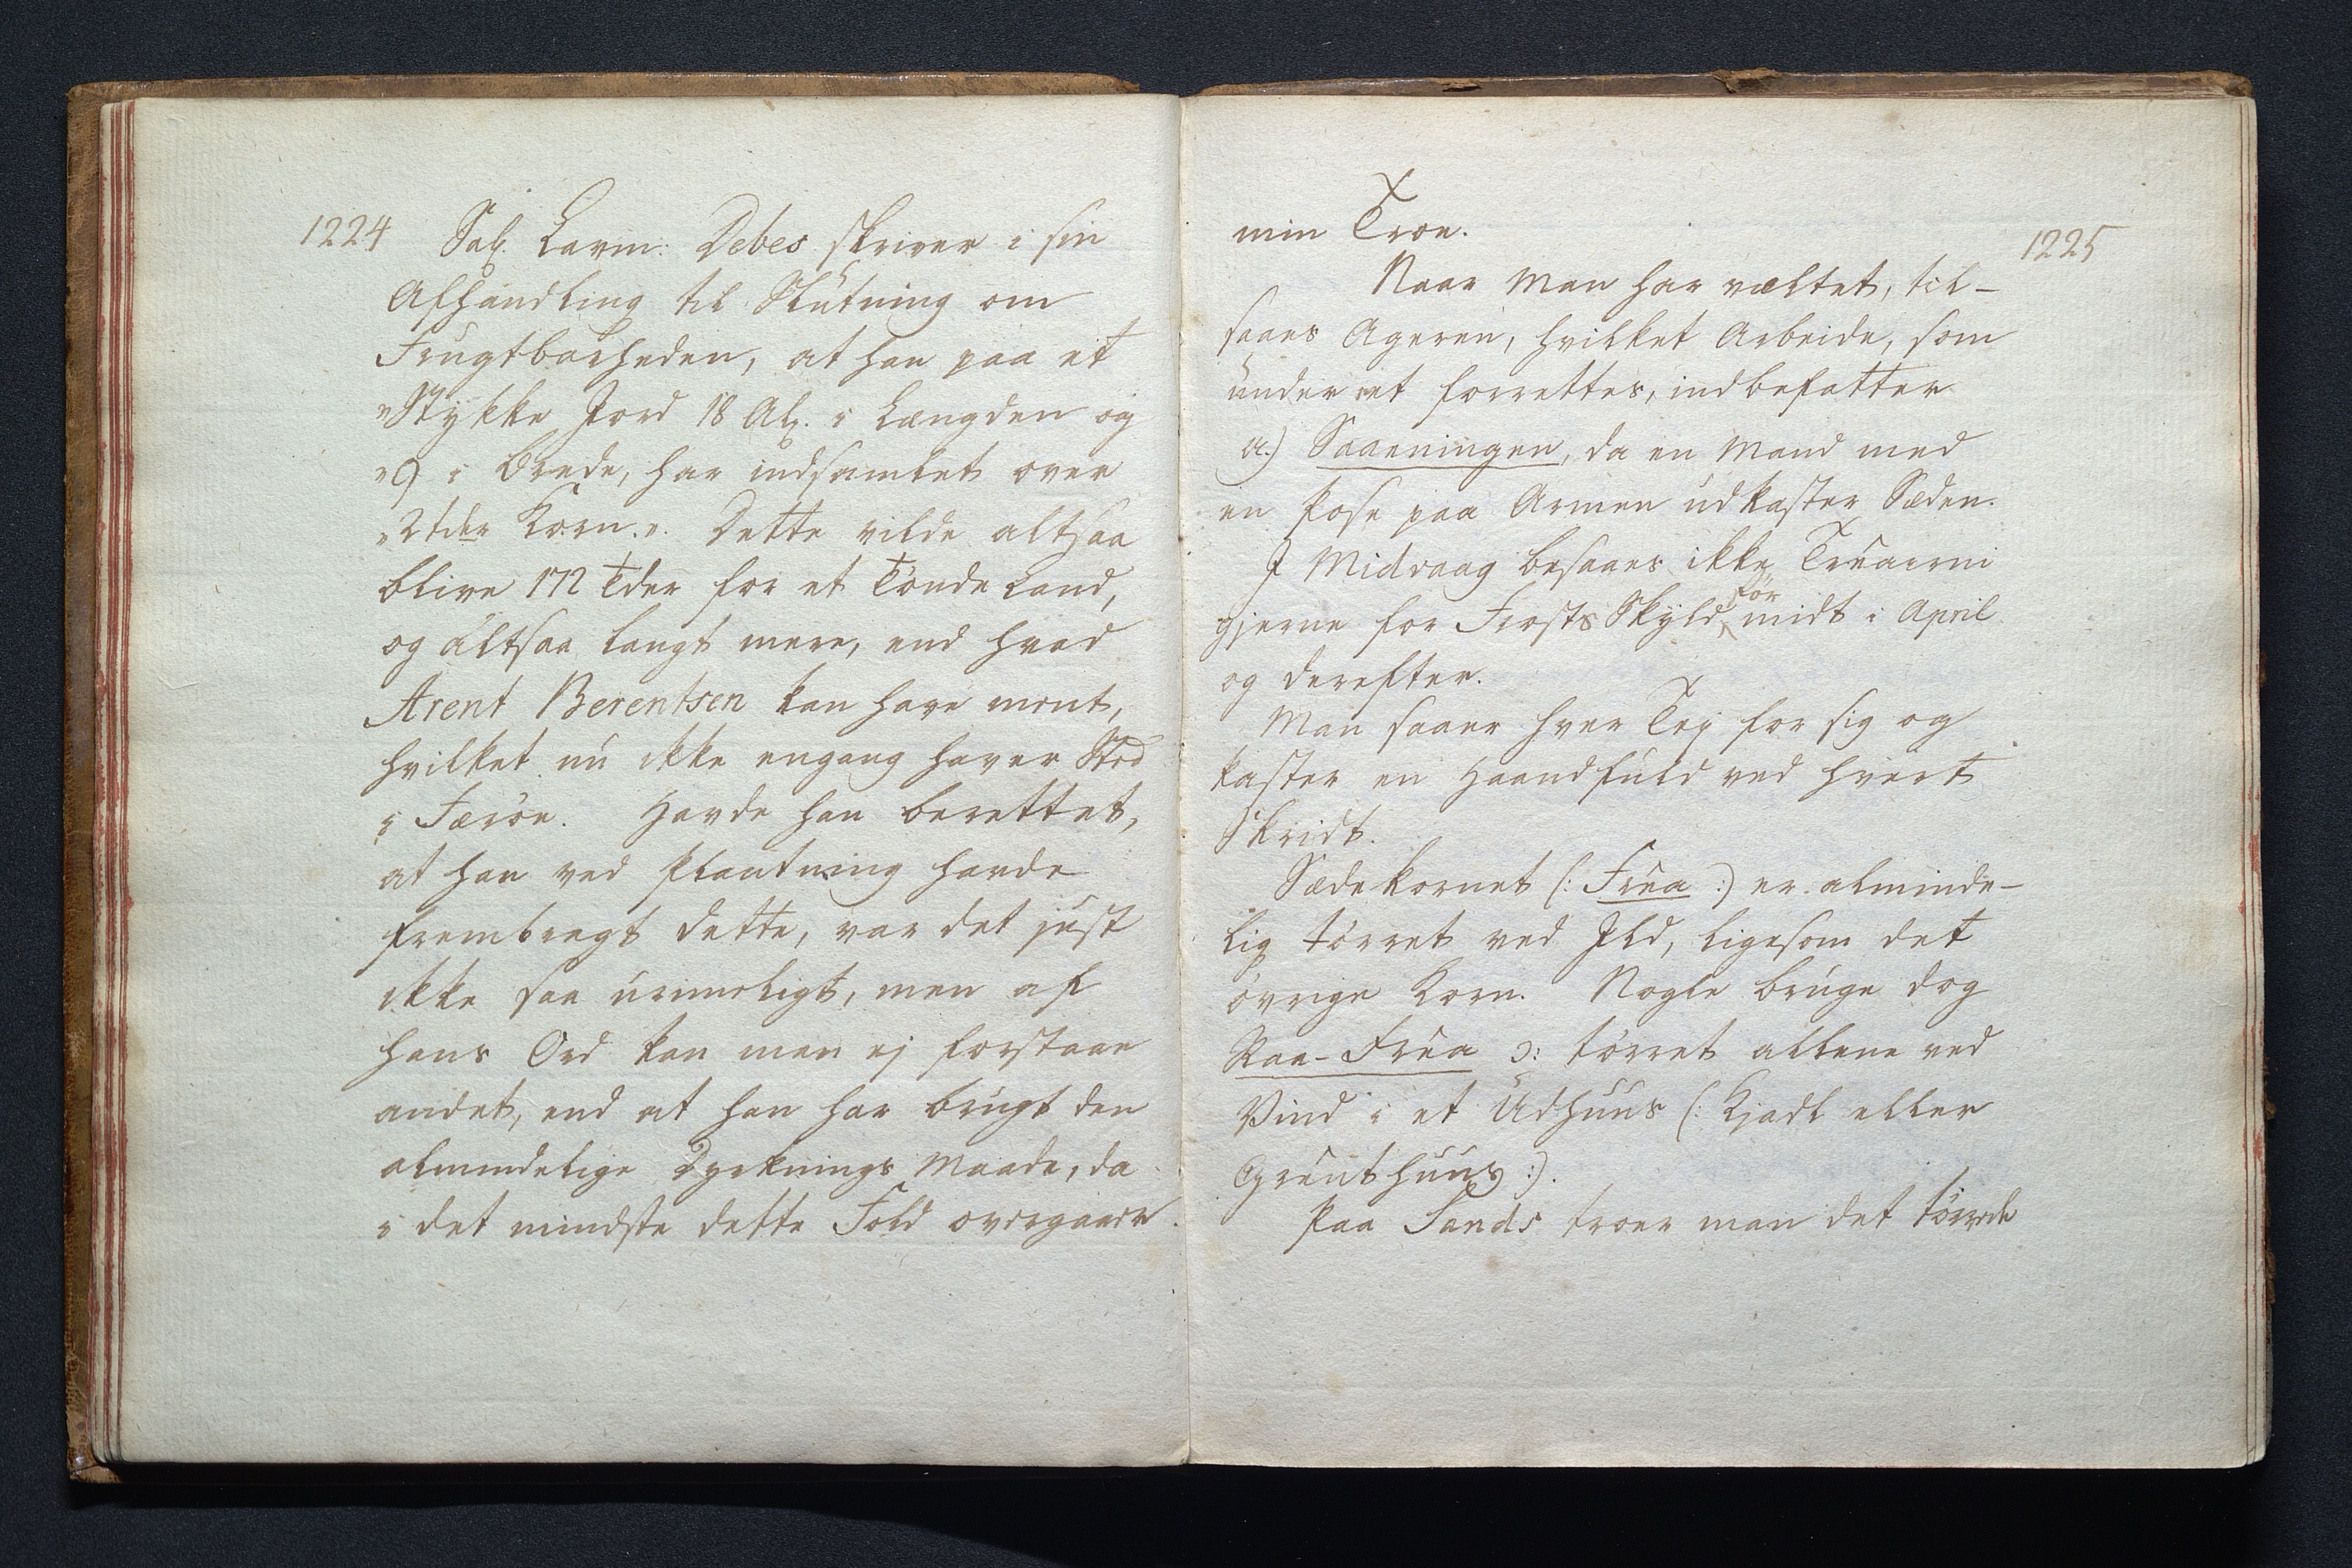 1224 Sal. Laurn: Debes skriver i sin
Afhandling til Slutning om
Frugtbarheden, at han paa et
"Stykke Jord 18 Al. i Længden og
"9 i Brede, har indsamlet over
"2 tdr Korn.". Dette vilde altsaa
blive 172 Tder for et Tønde Land,
og altsaa langt mere, end hvad
Arent Berentsen kan have ment,
hvilket nu ikke engang haver Sted
i Færöe. Havde han berettet,
at han ved Plantning havde
frembragt dette, var det just
ikke saa urimeligt, men af
hans Ord kan man ej forstaae
andet, end at han har brugt den
almindelige Dyrknings Maade, da
i det mindste dette Fold overgaaer
min Troe.
1225
Naar Man har væltet, til-
saaes Ageren, hvilket Arbeide, som
under et forrettes, indbefatter
a.) Saaeningen, da en Mand med
en Pose paa Armen udkaster Sæden.
I Midvaag besaaes ikke Treaerni
gjerne for Frosts Skyld för midt i April
og derefter.
Man saaer hver Tej for sig og
kaster en Haandfuld ved hvert
Skridt.
Sædekornet (: Frua :) er alminde-
lig törret ved Ild, ligesom det
övrige Korn. Nogle bruge dog
Raa-Frua ɔ: törret allene ved
Vind i et Udhuus (: Kjadl eller
Grunthuus :).
Paa Sands troer man det törrede